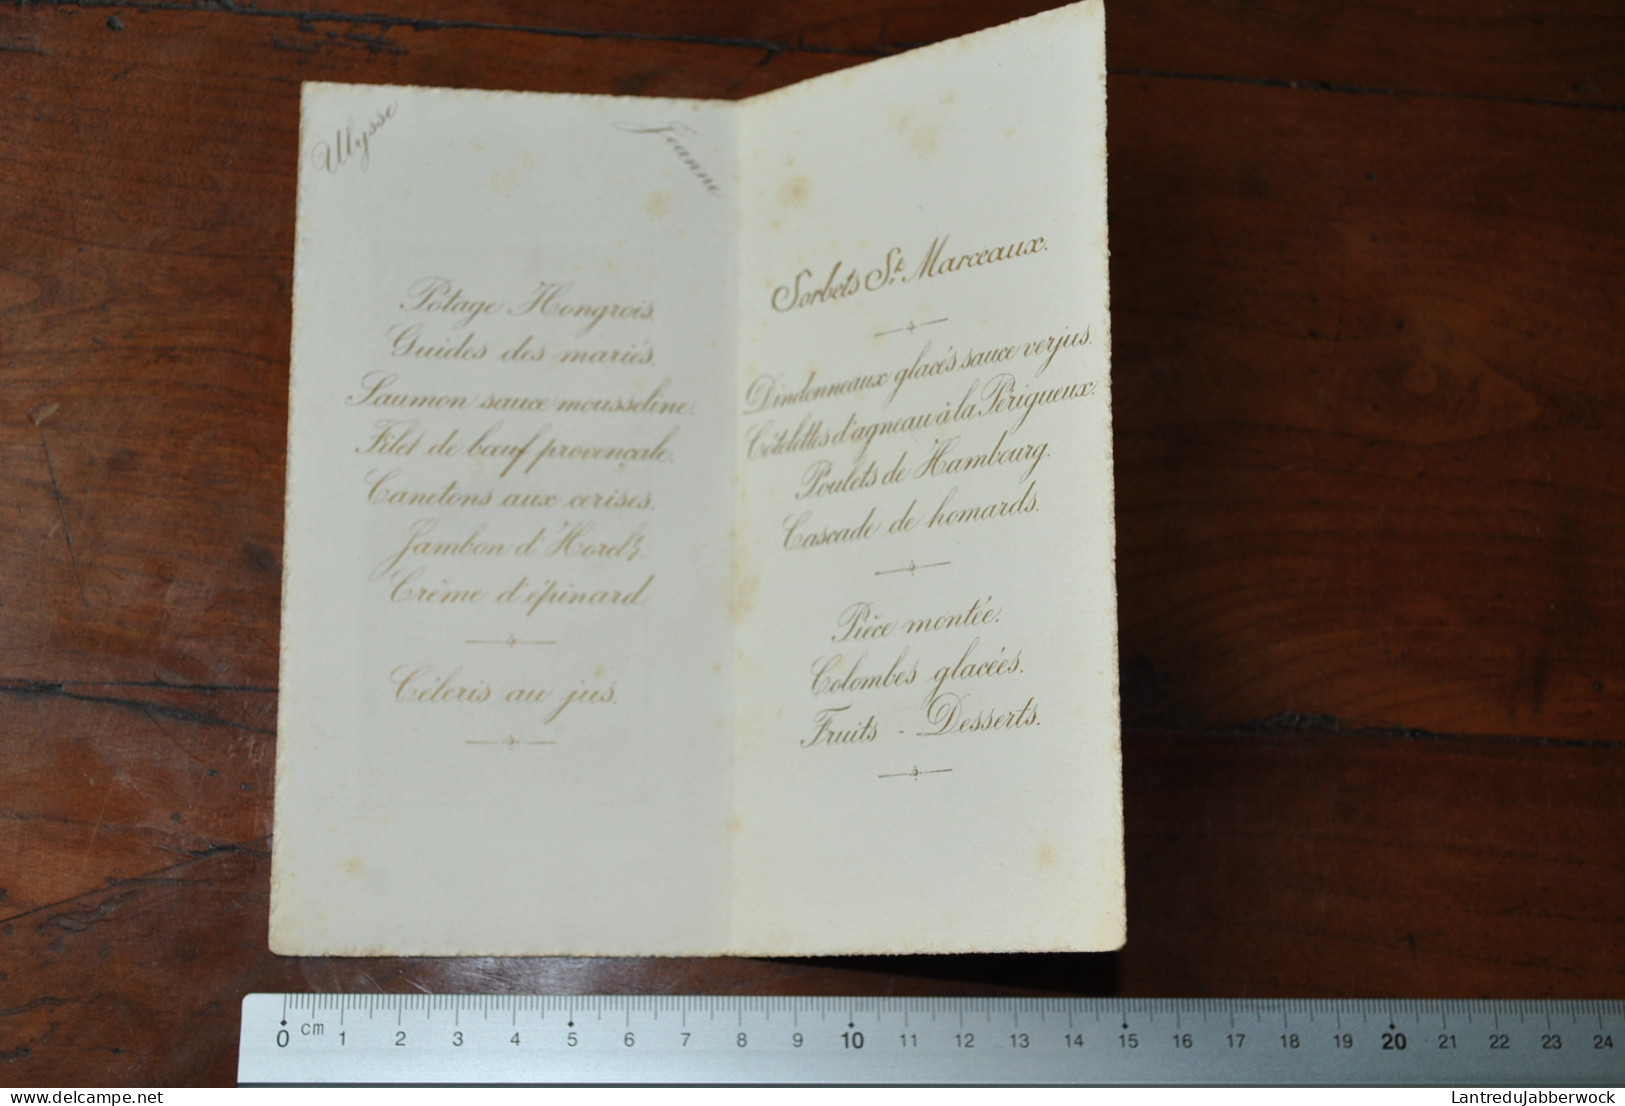 Ulysse
Jeanne
Potage Hongrois.
Guides des mariés.
Saumon sauce mousseline.
Filet de bœuf provençale.
Canetons aux cerises.
Jambon d'
Crème d'épinard.
Céleris au jus.
Sorbets St. Marceaux.
Dindonneaux glacés sauce verjus.
Côtelettes d'agneau à la Périgueux.
Poulets de Hambourg.
Cascade de homards.
Pièce montée.
Colombes glacées.
Fruits - Desserts.
0 cm 1 2 3 4 5 6 7 8 9 10 11 12 13 14 15 16 17 18 19 20 21 22 23 24
delcampe.net
LantreduJabberwock